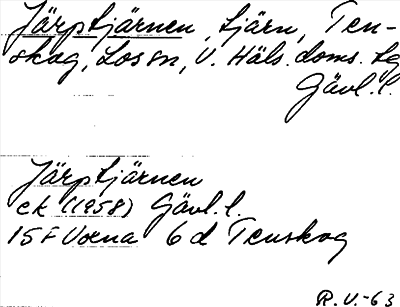 Järptjärnen, tjärn, Ten-
skog, Los sn, V. Häls. doms. tg
Gävl. l.
Järptjärnen
ek (1958) Gävl. l.
15 F Voxna 6 d Tenskog
R.V.-63